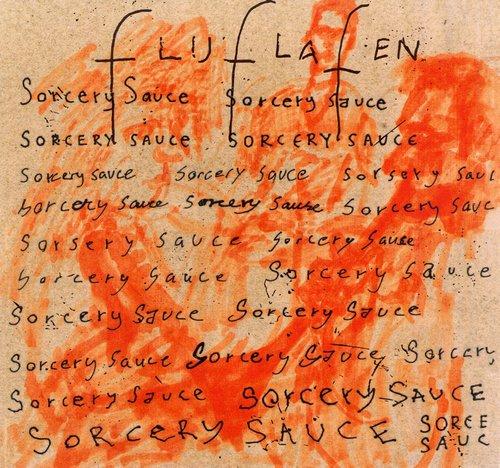 fLIJfLAfEN
Sorcery Sauce Sorcery Sauce
SORCERY SAUCE SORCERY SAUCE
Sorcery Sauce Sorcery Sauce Sorsery Sauc
Sorcery Sauce Sorcery Sause Sorcery Sauc
Sorsery Sauce Sorcery Sauce
Sorcery Sauce Sorcery Sauce
Sorcery Sauce Sorcery Sauce
Sorcery Sauce Sorcery Sauce Sorcery
Sorcery Sauce SORCERY SAUCE
SORCERY SAUCE SORCE
SAUC